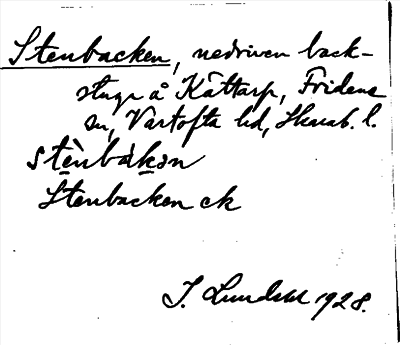 Stenbacken, nedriven back-
stuga å Kättarp, Fridene
sn, Vartofta hd, Skarab. l.
stènbàkən
Stenbacken ck
J. Lundahl 1928.